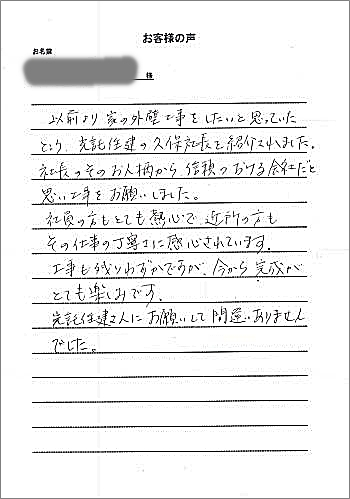 お客様の声
お名前
様
以前より家の外壁工事をしたいと思っていた
ところ、先託住建の久保社長を紹介されました。
社長のそのお人柄から、信頼のおける会社だと
思い工事をお願いしました。
社員の方もとても熱心で、近所の方も
その仕事の丁寧さに感心されています。
工事も残りわずかですが、今から完成が
とても楽しみです。
先託住建さんにお願いして間違いありません
でした。